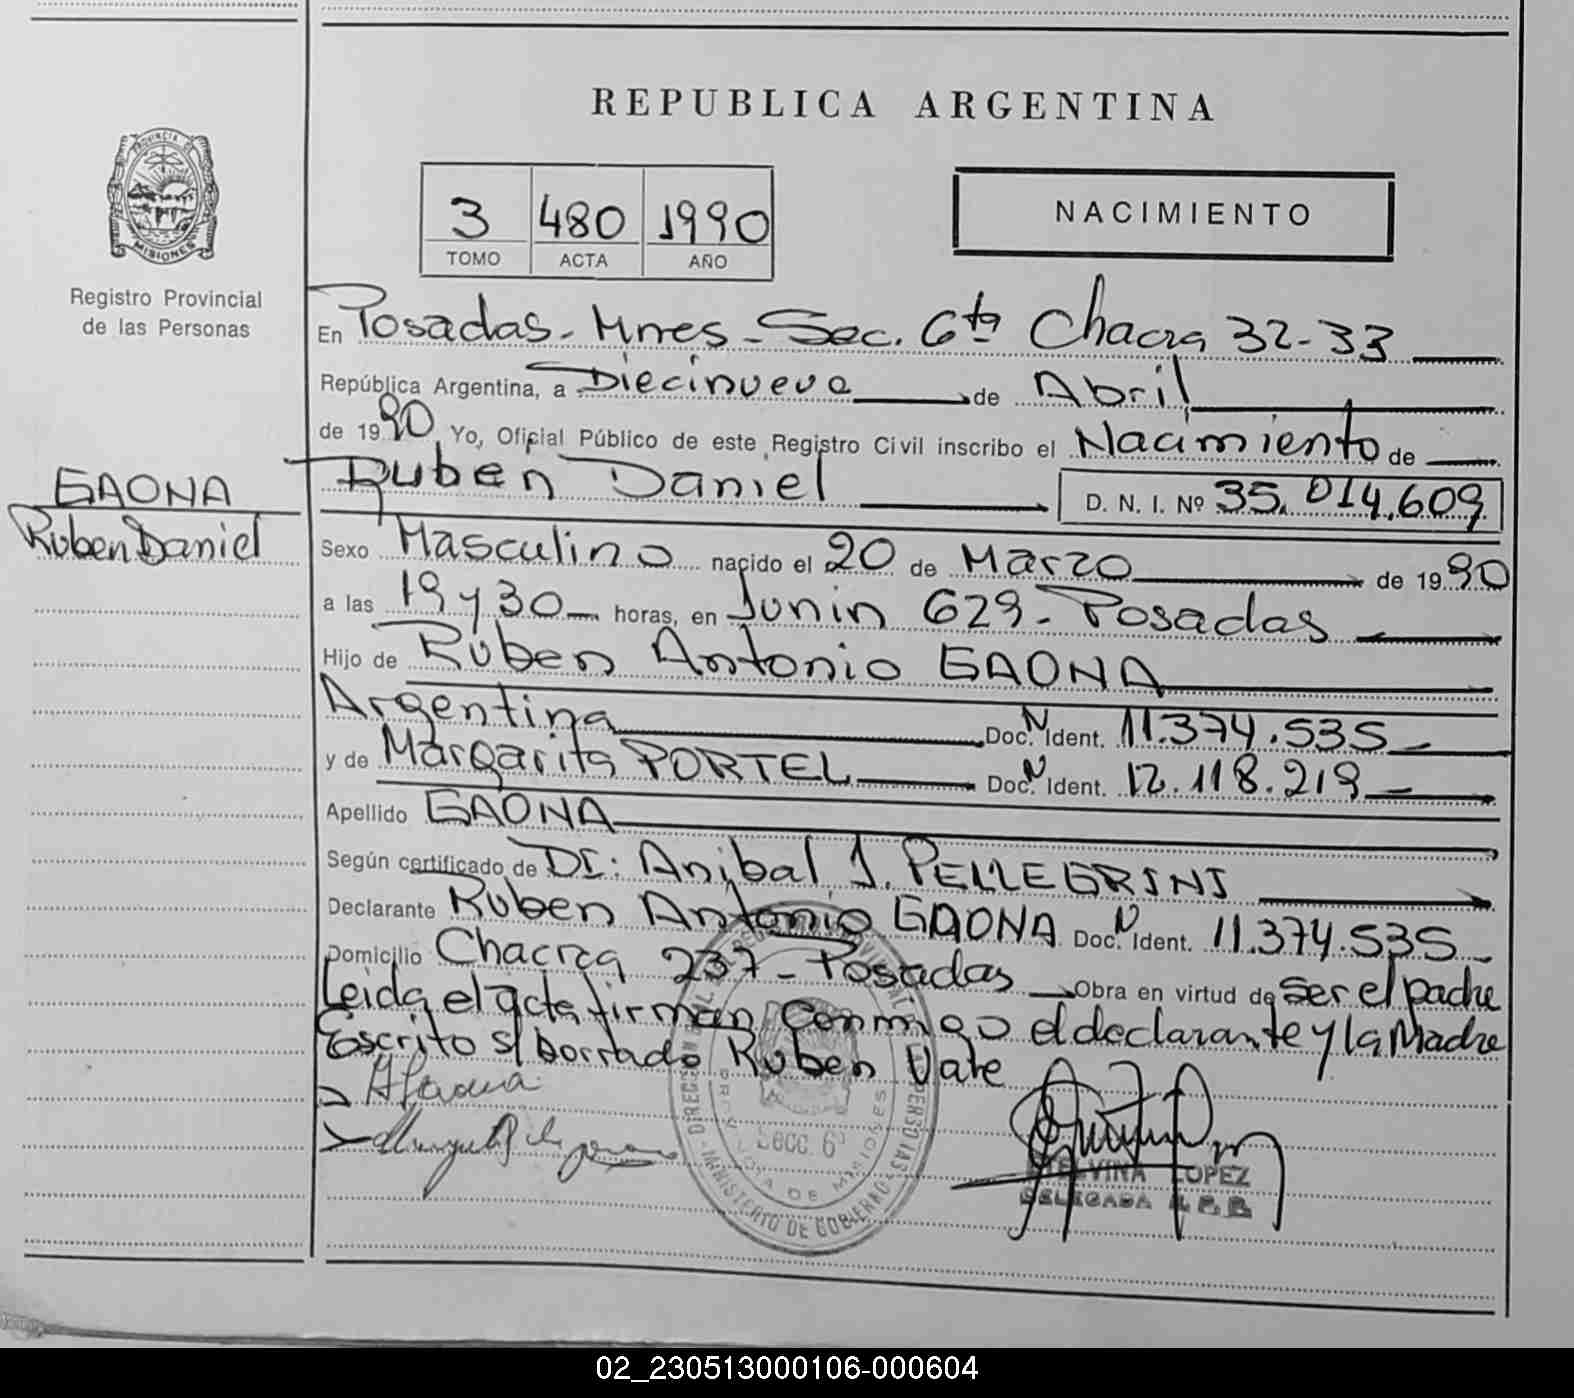 REPUBLICA ARGENTINA
PROVINCIA DE
MISIONES
Registro Provincial
de las Personas
3 480 1990
TOMO ACTA AÑO
NACIMIENTO
En Posadas - Mnes - Sec. 6ta Chacra 32-33
República Argentina, a Diecinueve de Abril
de 1990, Yo, Oficial Público de este Registro Civil inscribo el Nacimiento de
GAONA
Ruben Daniel
Ruben Daniel D. N. I. Nº 35.014.609
Sexo Masculino nacido el 20 de Marzo de 1990
a las 19 y 30 horas, en Junin 629 - Posadas
Hijo de Ruben Antonio GAONA
Argentina Doc. N Ident. 11.374.535
y de Margarita PORTEL Doc. N Ident. 12.118.219
Apellido GAONA
Según certificado de Dr: Anibal J. PELLEGRINI
Declarante Ruben Antonio GAONA Doc. N Ident. 11.374.535
Domicilio Chacra 237 - Posadas Obra en virtud de ser el padre
Leida el acta firman conmigo el declarante y la Madre
Escrito s/ borrado Ruben Vale
Secc. 6ª
PROVINCIA DE MISIONES
MINISTERIO DE GOBIERNO
ETELVINA LOPEZ
DELEGADA R.P.P.
02_230513000106-000604